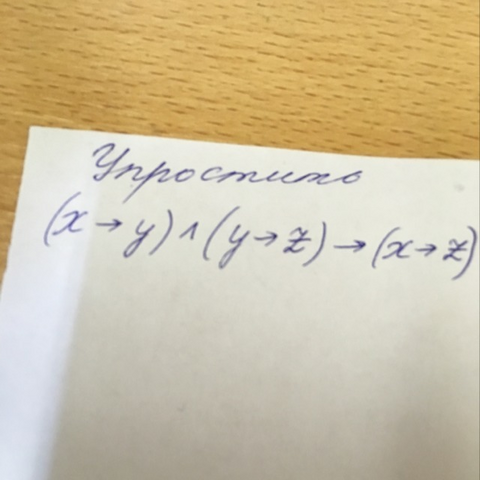 Упростить
(x→y)∧(y→z)→(x→z)